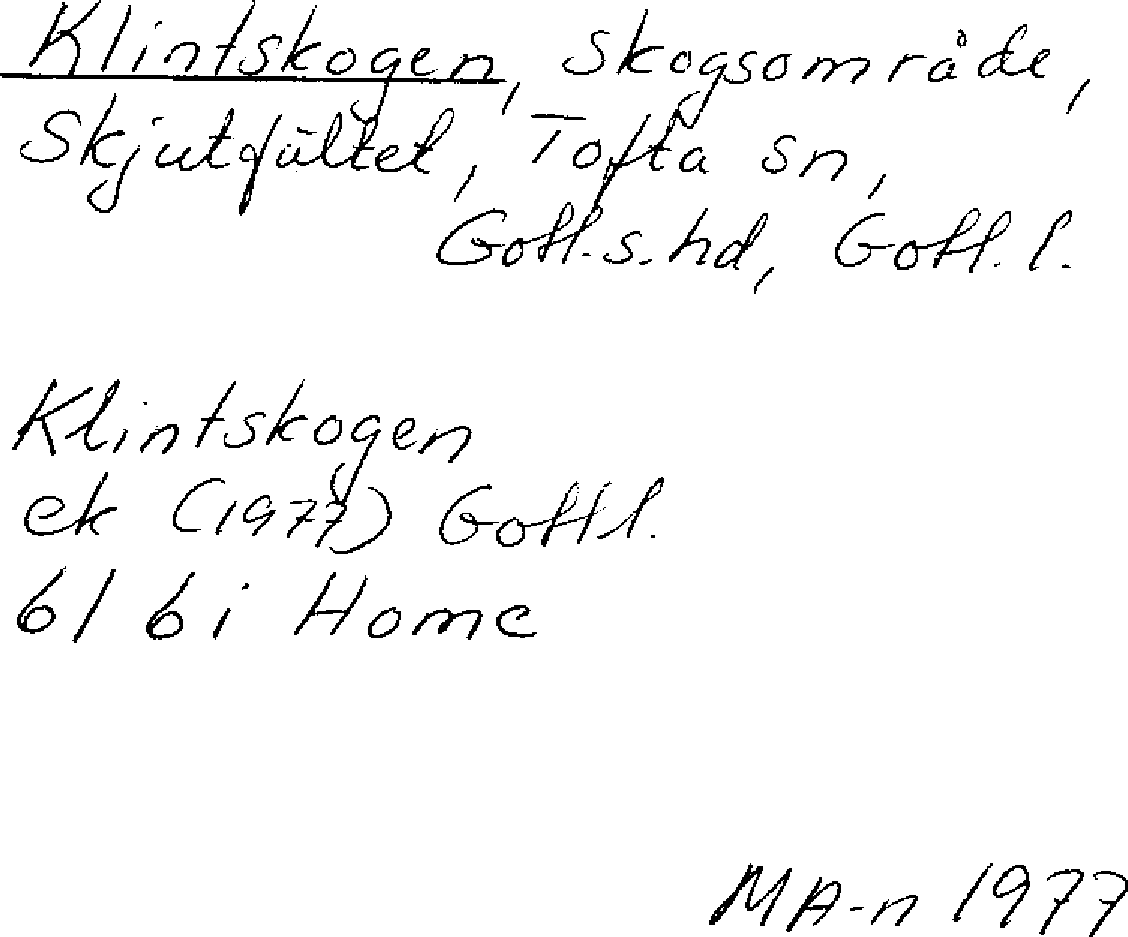 Klintskogen, Skogsområde,
Skjutfältet, Tofta sn,
Gotl.s.hd, Gotl. l.
Klintskogen
ek (1977) Gotl l.
6I 6i Home
MA-n 1977